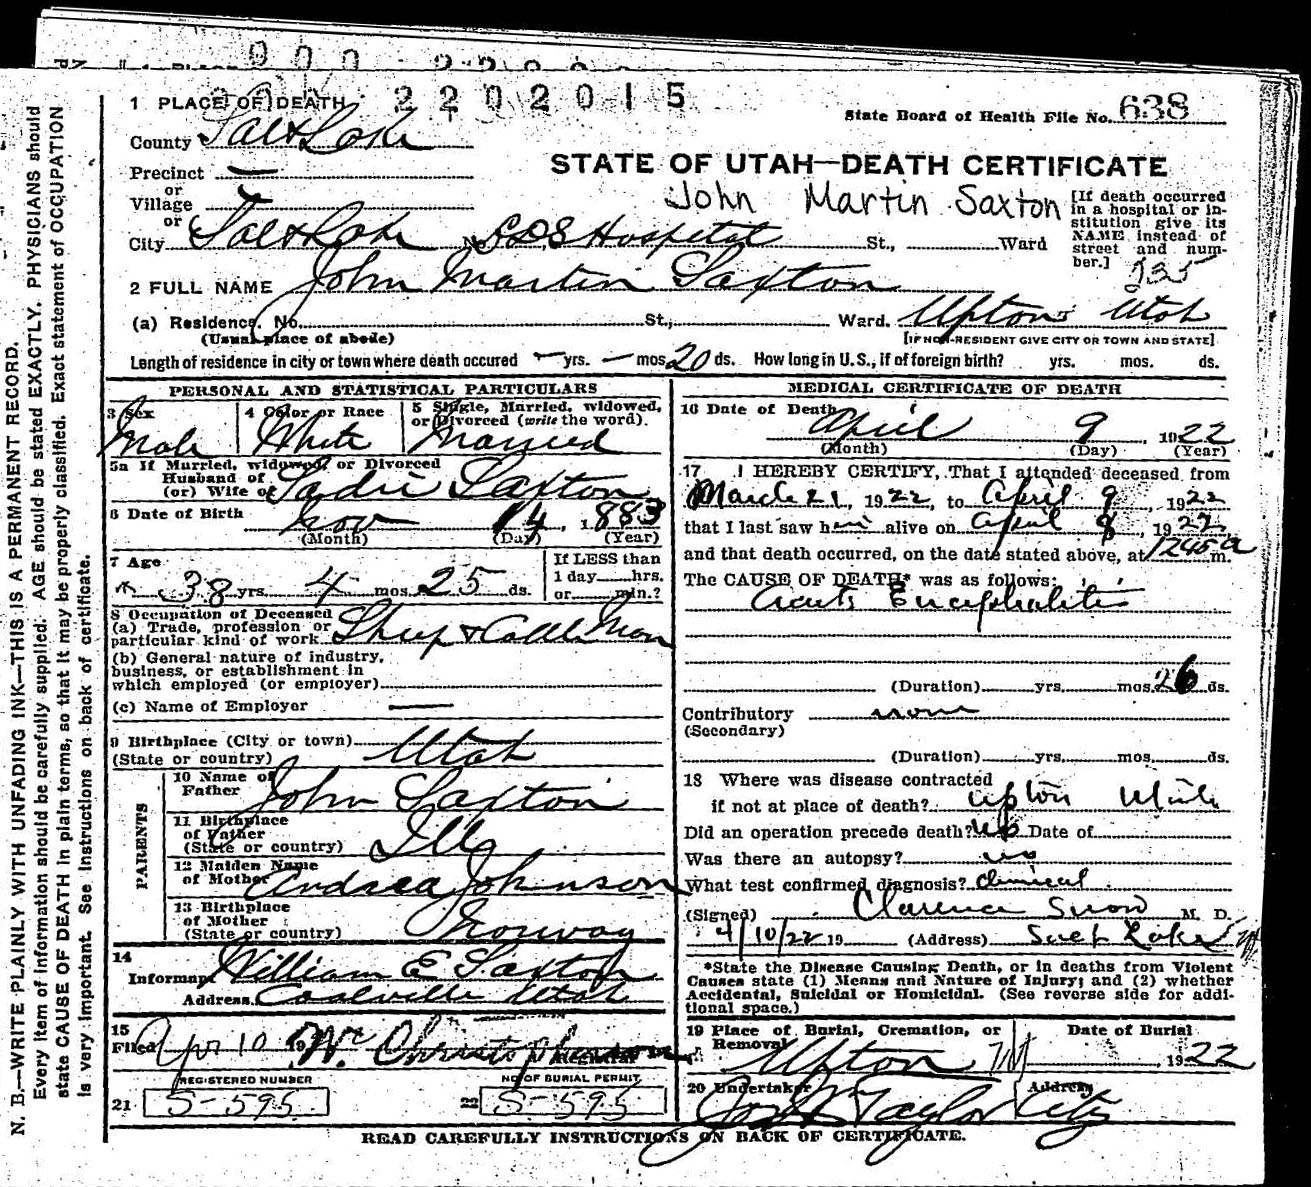 2202015
1 PLACE OF DEATH
State Board of Health File No. 638
County Salt Lake
STATE OF UTAH—DEATH CERTIFICATE
Precinct —
or
Village
or
John Martin Saxton
[If death occurred in a hospital or institution give its NAME instead of street and number.]
City Salt Lake No. LDS Hospital St., Ward
2 FULL NAME John Martin Saxton
(a) Residence. No. St., Ward. Upton Utah
(Usual place of abode)
[IF NON-RESIDENT GIVE CITY OR TOWN AND STATE]
Length of residence in city or town where death occured — yrs. — mos. 20 ds. How long in U.S., if of foreign birth? yrs. mos. ds.
PERSONAL AND STATISTICAL PARTICULARS
3 Sex
Male
4 Color or Race
White
5 Single, Married, widowed, or Divorced (write the word).
Married
5a If Married, widowed, or Divorced
Husband of
(or) Wife of Sadie Saxton
6 Date of Birth Nov 14, 1883
(Month) (Day) (Year)
7 Age
38 yrs. 4 mos. 25 ds.
If LESS than
1 day hrs.
or min.?
8 Occupation of Deceased
(a) Trade, profession or
particular kind of work Sheep & Cattle Man
(b) General nature of industry,
business, or establishment in
which employed (or employer)
(c) Name of Employer —
9 Birthplace (City or town)
(State or country) Utah
PARENTS
10 Name of
Father John Saxton
11 Birthplace
of Father
(State or country) Ill
12 Maiden Name
of Mother Andrea Johnson
13 Birthplace
of Mother
(State or country) Norway
14
Informant William E Saxton
Address Coalville Utah
15
Filed Apr 10 19 W. Christopherson
Registrar
REGISTERED NUMBER
21 S-595
NO OF BURIAL PERMIT
22 S-595
MEDICAL CERTIFICATE OF DEATH
16 Date of Death
April 9, 1922
(Month) (Day) (Year)
17 I HEREBY CERTIFY, That I attended deceased from
March 21, 1922, to April 9, 1922
that I last saw him alive on April 9, 1922
and that death occurred, on the date stated above, at 1245 a m.
The CAUSE OF DEATH* was as follows:
Acute Encephalitis
(Duration) yrs. mos. 26 ds.
Contributory none
(Secondary)
(Duration) yrs. mos. ds.
18 Where was disease contracted
if not at place of death? Upton Utah
Did an operation precede death? no Date of
Was there an autopsy? no
What test confirmed diagnosis? clinical
(Signed) Clarence Snow M. D.
4/10/22 19 (Address) Salt Lake
*State the Disease Causing Death, or in deaths from Violent
Causes state (1) Menns and Nature of Injury; and (2) whether
Accidental, Suicidal or Homicidal. (See reverse side for addi-
tional space.)
19 Place of Burial, Cremation, or
Removal
Upton
Date of Burial
1922
20 Undertaker
Taylor
Address
City
READ CAREFULLY INSTRUCTIONS ON BACK OF CERTIFICATE.
N. B.—WRITE PLAINLY WITH UNFADING INK—THIS IS A PERMANENT RECORD.
Every item of information should be carefully supplied. AGE should be stated EXACTLY. PHYSICIANS should
state CAUSE OF DEATH in plain terms, so that it may be properly classified. Exact statement of OCCUPATION
is very important. See instructions on back of certificate.